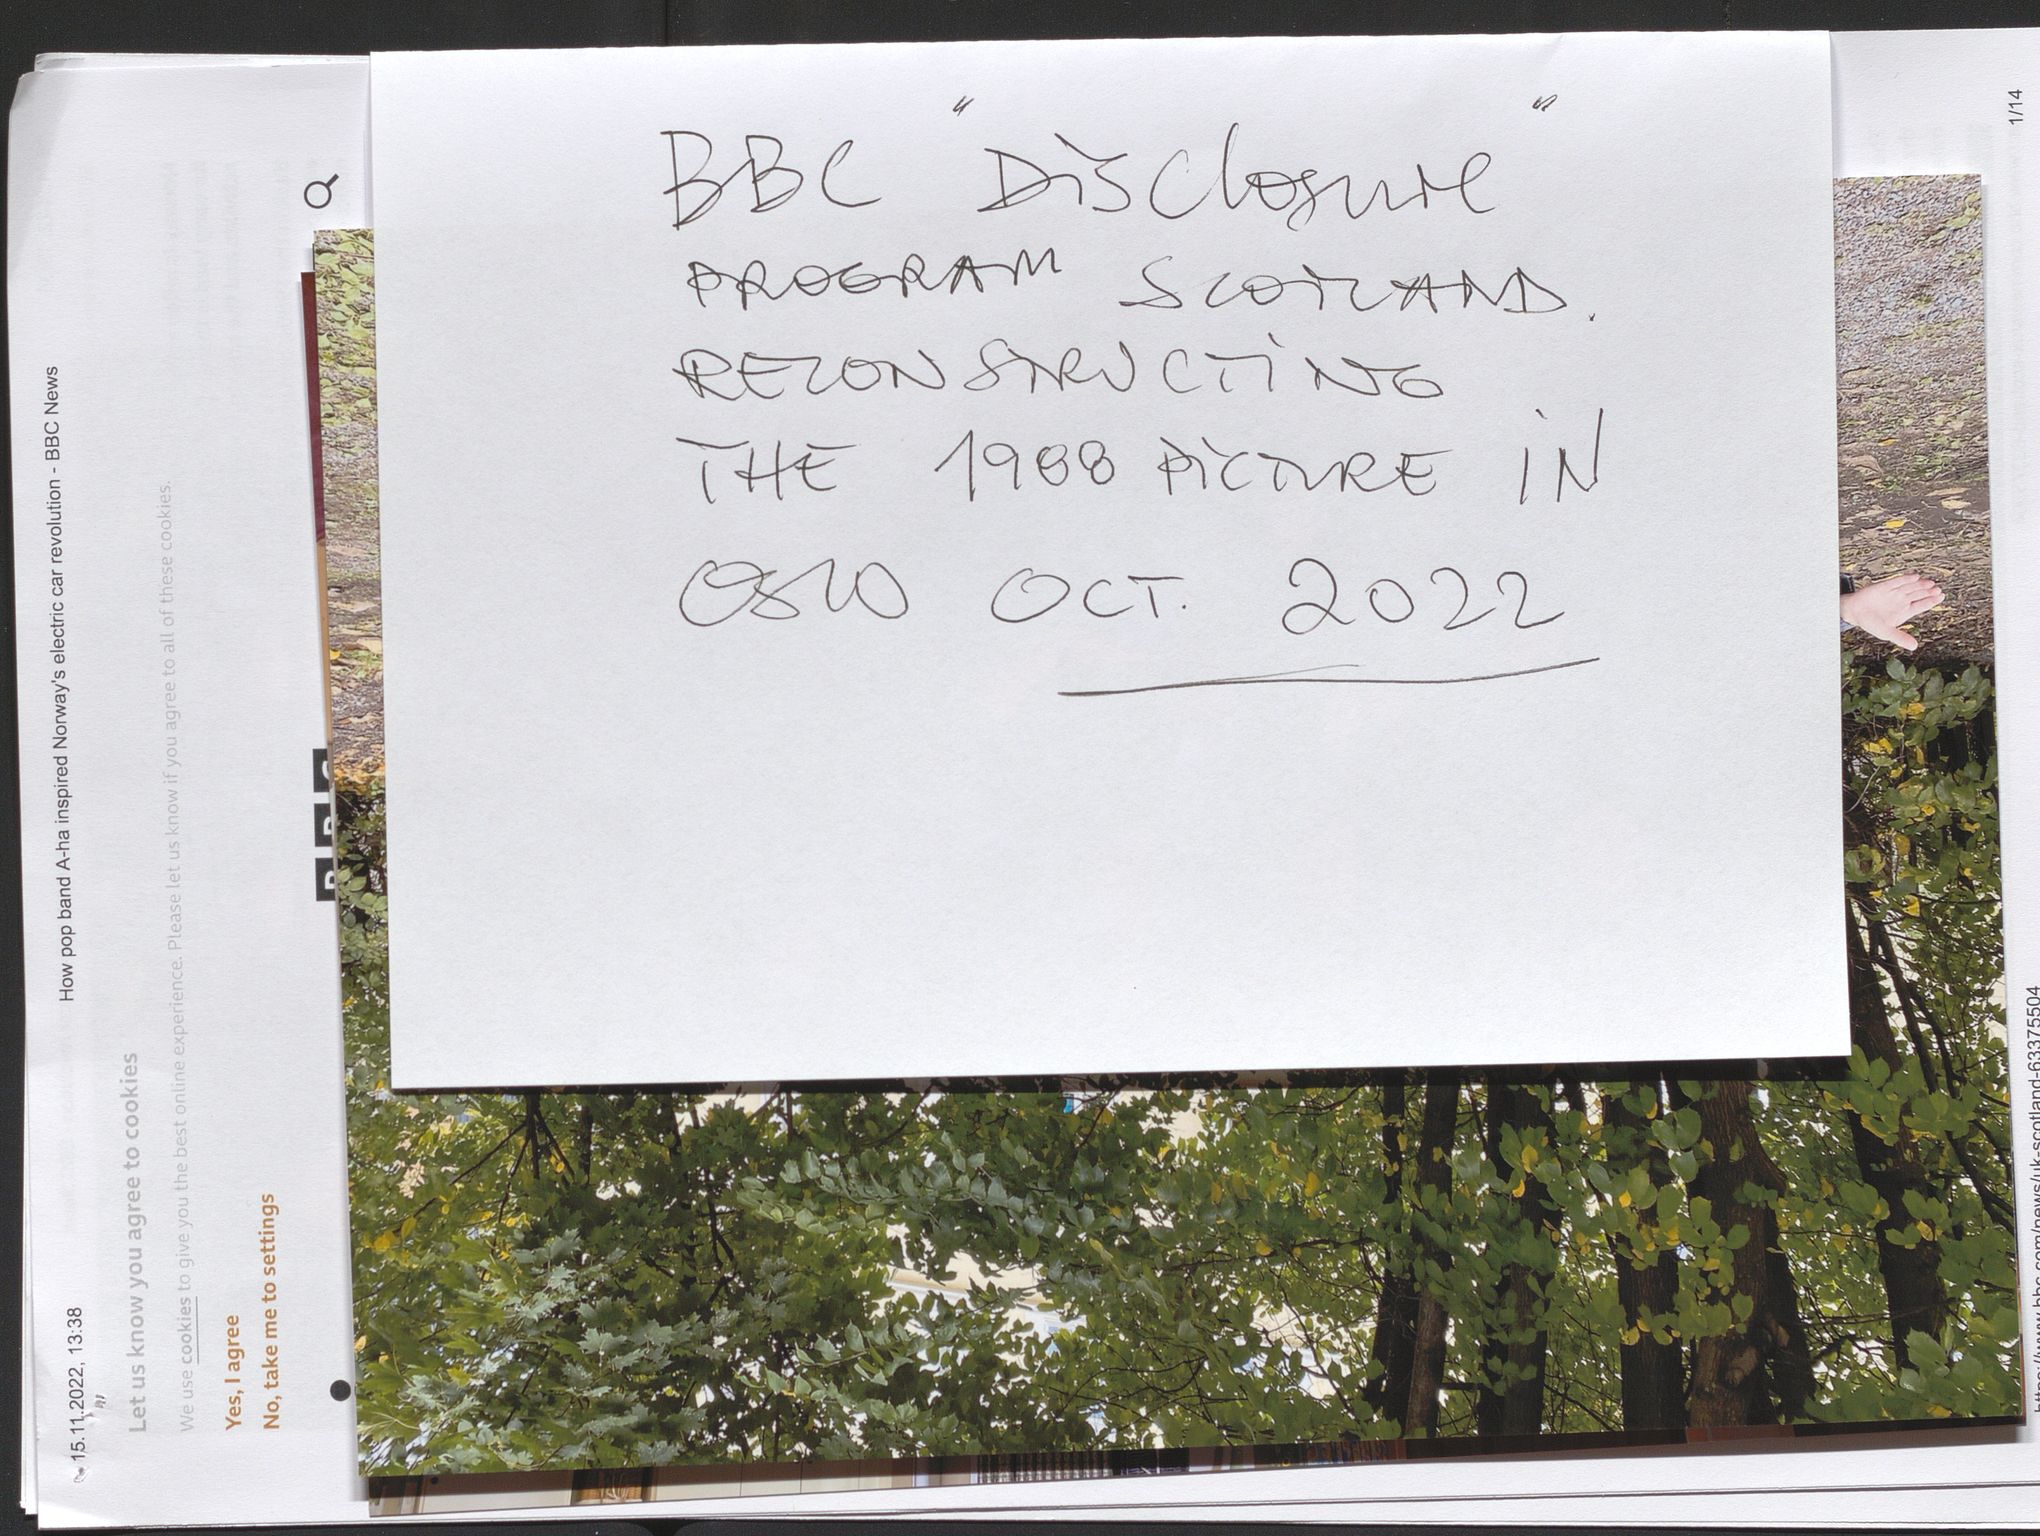 BBC "Disclosure"
PROGRAM SCOTLAND.
REZONSTRUCTING
THE 1988 PICTURE IN
OSLO OCT. 2022
15.11.2022, 13:38
How pop band A-ha inspired Norway's electric car revolution - BBC News
Let us know you agree to cookies
We use cookies to give you the best online experience. Please let us know if you agree to all of these cookies.
Yes, I agree
No, take me to settings
1/14
https://www.bbc.com/news/uk-scotland-63375504